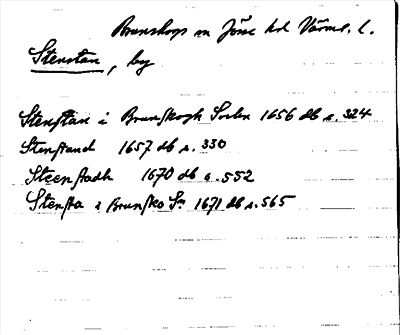 Brunskogs sn Jösse hd Värml. l.
Stenstan, by
Stenstan i Brunskogh Sochn 1656 db s. 324
Stenstand 1657 db s. 330
Steenstadh 1670 db s. 552
Stensta i Brunsko Sn 1671 db s. 565